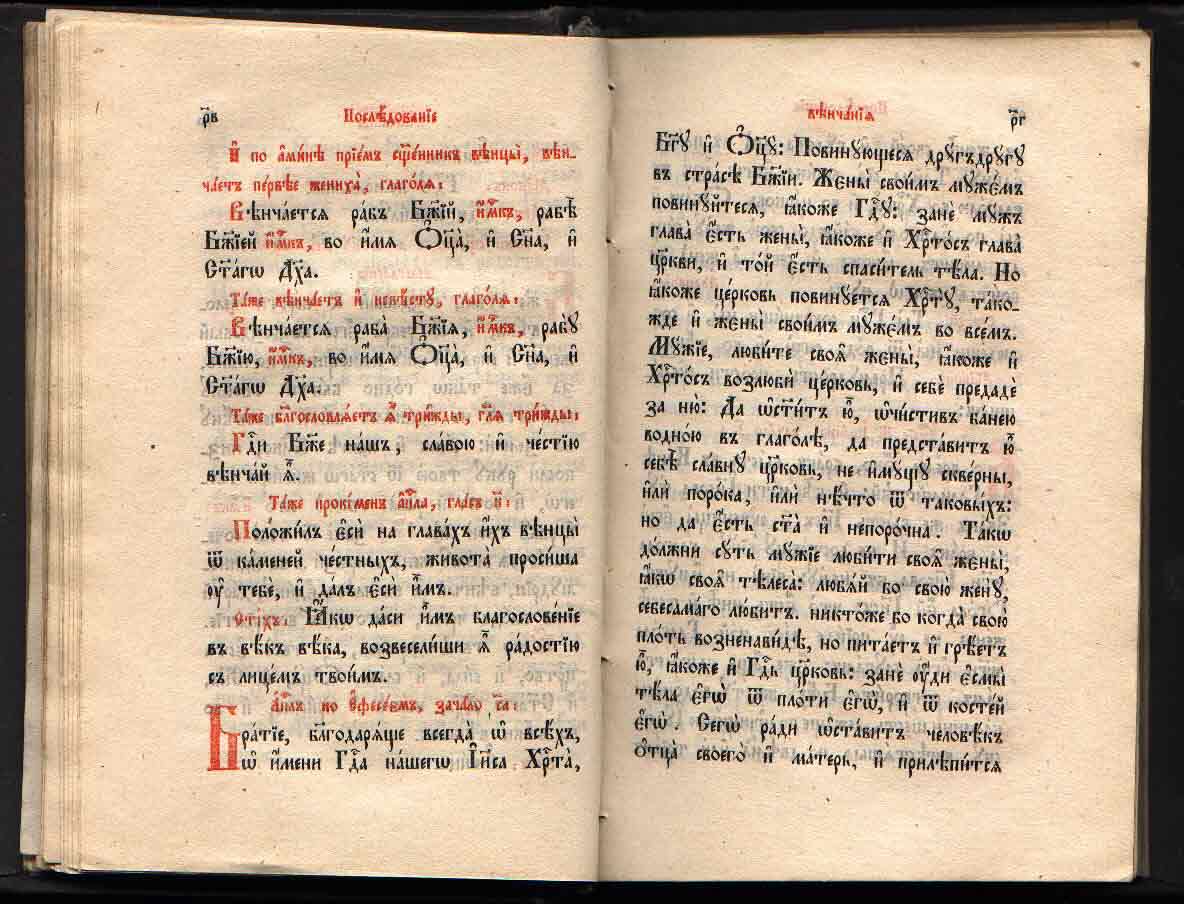 р҃в
Послѣ́дованїе
И҆ по а҆ми́нѣ прїе́мъ сщ҃е́нникъ вѣнцы̀, вѣн-
ча́етъ пе́рвѣе жениха̀, глаго́лѧ:
Вѣнча́етсѧ ра́бъ Бж҃їй, и҆́м҃къ, рабѣ̀
Бж҃їей и҆́м҃къ, во и҆́мѧ Ѻ҆ц҃а̀, и҆ Сн҃а, и҆
Ст҃а́гѡ Дх҃а.
Та́же вѣнча́етъ и҆ невѣ́сту, глаго́лѧ:
Вѣнча́етсѧ раба̀ Бж҃їѧ, и҆́м҃къ, рабꙋ̀
Бж҃їю, и҆́м҃къ, во и҆́мѧ Ѻ҆ц҃а̀, и҆ Сн҃а, и҆
Ст҃а́гѡ Дх҃а.
Та́же бл҃гословлѧ́етъ ѧ҆̀ три́жды, гл҃ѧ три́жды:
Гд҃и Бж҃е на́шъ, сла́вою: и҆ че́стїю
вѣнча́й ѧ҆̀.
Та́же проки́менъ а҆пⷭ҇ла, гла́съ и҃:
Положи́лъ є҆сѝ на глава́хъ и҆́хъ вѣнцы̀
ѿ ка́меней че́стныхъ, живота̀ проси́ша
ᲂу҆ тебѐ, и҆ да́лъ є҆сѝ и҆̀мъ.
Сті́хъ: Ꙗ҆́кѡ да́си и҆̀мъ благослове́нїе
въ вѣ́къ вѣ́ка, возвесели́ши ѧ҆̀ ра́достїю
съ лице́мъ твои́мъ.
А҆пⷭ҇лъ ко Є҆фесе́ѡмъ, зача́ло с҃л:
Бра́тїе, бл҃года́рѧще всегда̀ ѡ҆ всѣ́хъ,
ѡ҆ и҆́мени Гд҃а на́шегѡ І҆и҃са Хрⷭ҇та̀,
вѣнча́нїѧ
р҃г
Бг҃ꙋ и҆ Ѻ҆ц҃ꙋ: Повинꙋ́ющесѧ дрꙋ́гъдрꙋ́гꙋ
въ стра́сѣ Бж҃їи. Жены̀ свои́мъ мꙋже́мъ
повинꙋ́йтесѧ, ꙗ҆́коже Гдⷭ҇ꙋ: занѐ мꙋ́жъ
глава̀ є҆́сть жены̀, ꙗ҆́коже и҆ Хрⷭ҇то́съ глава̀
цр҃кви, и҆ то́й є҆́сть спаси́тель тѣ́ла. Но
ꙗ҆́коже це́рковь повинꙋ́етсѧ Хрⷭ҇тꙋ̀, та́ко-
жде и҆ жены̀ свои́мъ мꙋже́мъ во все́мъ.
Мꙋ́жїе, люби́те своѧ҆̀ жены̀, ꙗ҆́коже и҆
Хрⷭ҇то́съ возлюбѝ це́рковь, и҆ себѐ предадѐ
за ню̀: Да ѡ҆ст҃и́тъ ю҆̀, ѡ҆чи́стивъ ба́нею
водно́ю въ глаго́лѣ, да предста́витъ ю҆̀
себѣ̀ сла́внꙋ цр҃ковь, не и҆мꙋ́щꙋ скве́рны,
и҆лѝ поро́ка, и҆лѝ нѣ́что ѿ таковы́хъ:
но да є҆́сть ст҃а̀ и҆ непоро́чна. Та́кѡ
до́лжни сꙋ́ть мꙋ́жїе люби́ти своѧ҆̀ жены̀,
ꙗ҆́кѡ своѧ҆̀ тѣлеса̀: любѧ́й бо свою̀ женꙋ̀,
себесама́го лю́битъ. никто́же бо когда̀ свою̀
пло́ть возненави́дѣ, но пита́етъ и҆ грѣ́етъ
ю҆̀, ꙗ҆́коже и҆ Гдⷭ҇ь цр҃ковь: занѐ ᲂу҆́ди є҆смы̀
тѣ́ла є҆гѡ̀ ѿ пло́ти є҆гѡ̀, и҆ ѿ косте́й
є҆гѡ̀. Сегѡ̀ ра́ди ѡ҆ста́витъ человѣ́къ
ѻ҆тца̀ своего̀ и҆ ма́терь, и҆ прилѣпи́тсѧ